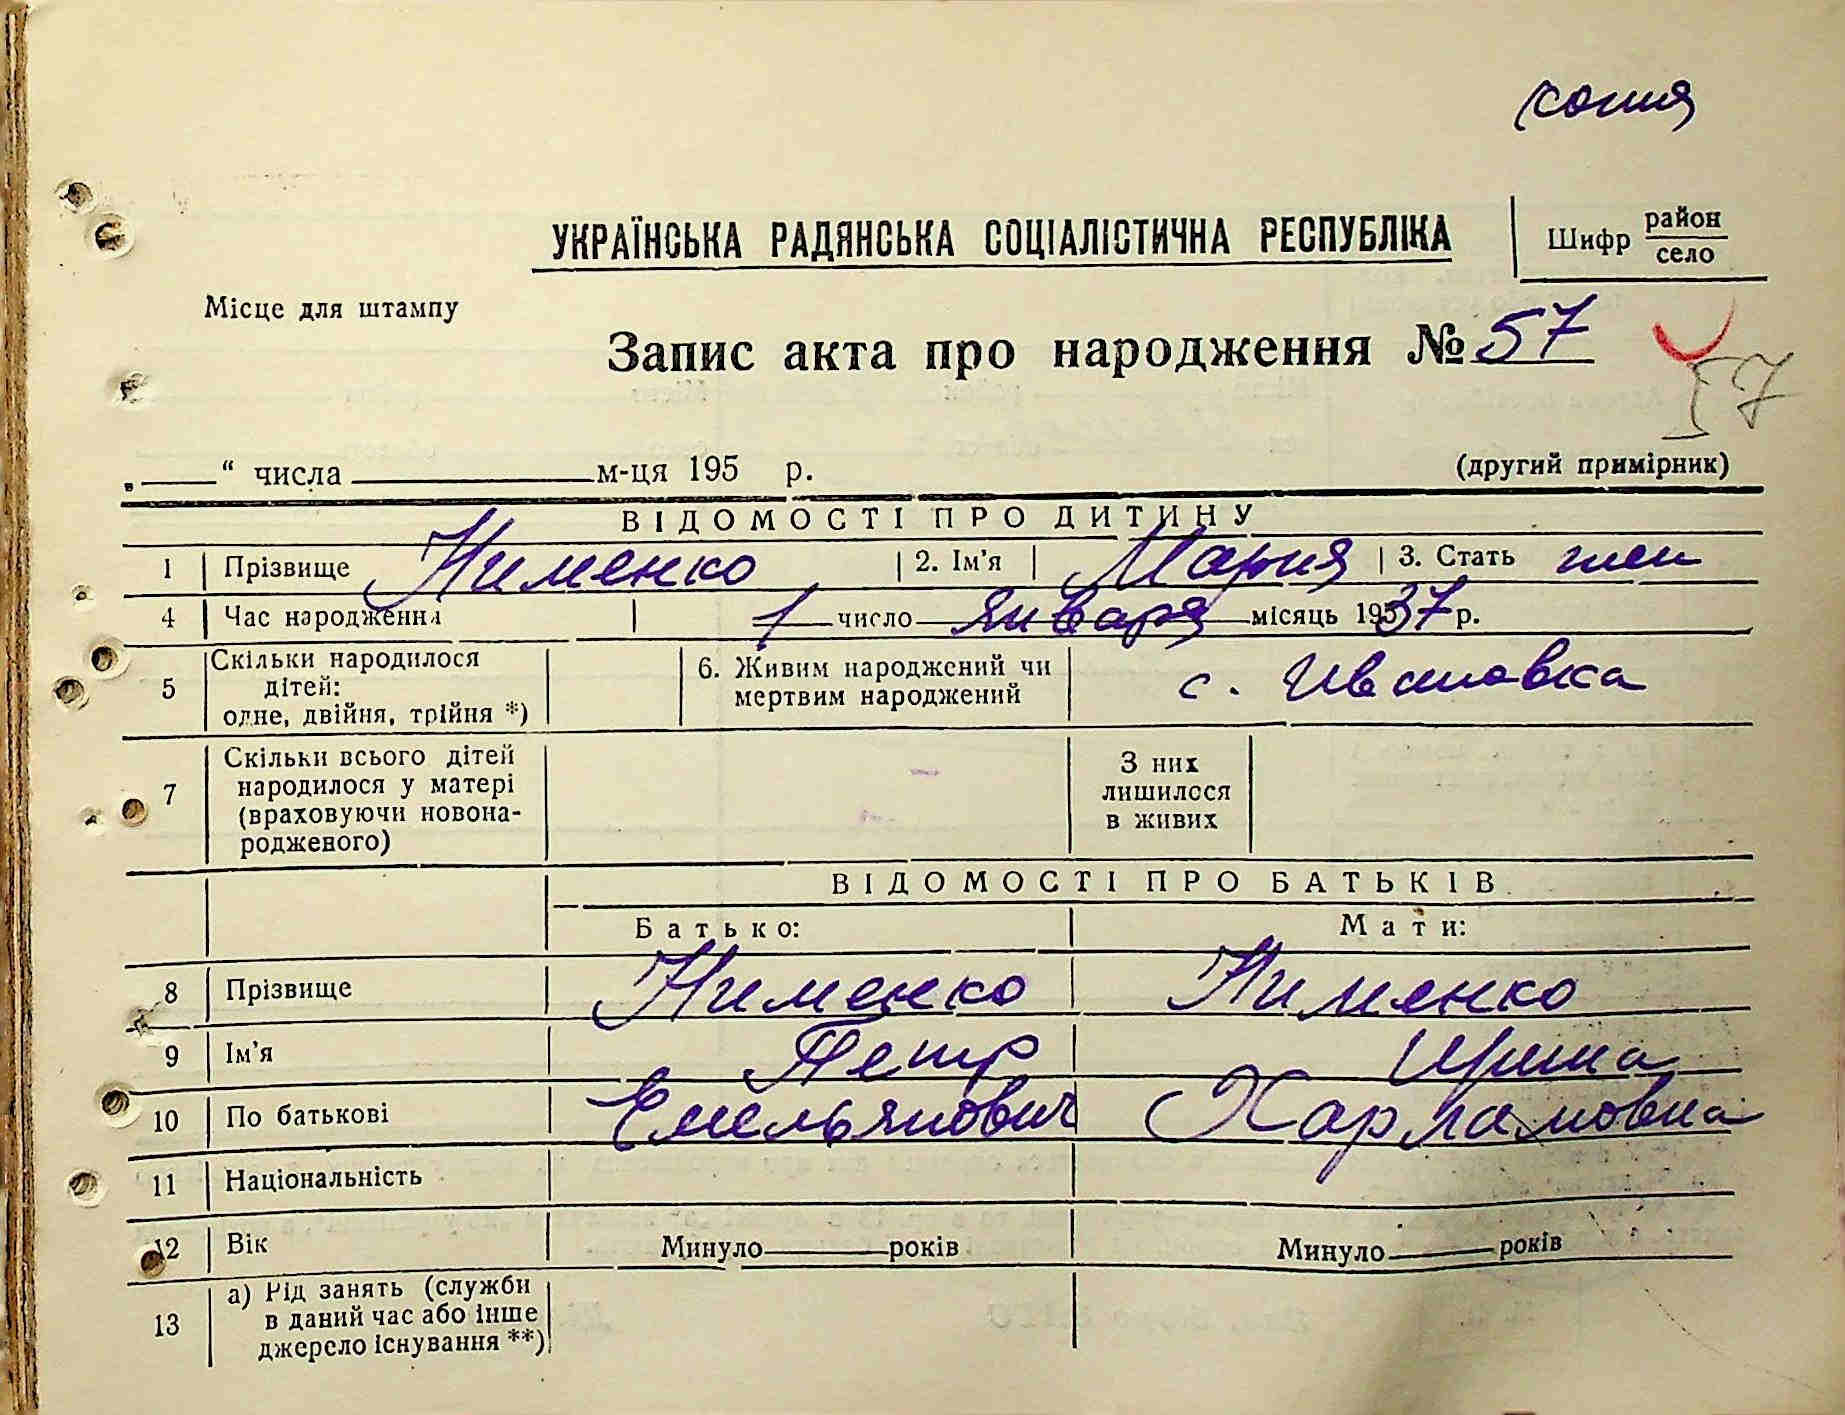 копия
УКРАЇНСЬКА РАДЯНСЬКА СОЦІАЛІСТИЧНА РЕСПУБЛІКА
Шифр район село
Місце для штампу
Запис акта про народження № 57
57
„ “ числа м-ця 195 р. (другий примірник)
ВІДОМОСТІ ПРО ДИТИНУ
1 Прізвище Нименко 2. Ім'я Мария 3. Стать жен
4 Час народження 1 число января місяць 1937 р.
5 Скільки народилося дітей: одне, двійня, трійня *) 6. Живим народжений чи мертвим народжений с. Ивановка
7 Скільки всього дітей народилося у матері (враховуючи новонародженого) З них лишилося в живих
ВІДОМОСТІ ПРО БАТЬКІВ
Батько: Мати:
8 Прізвище Нименко Нименко
9 Ім'я Петр Ирина
10 По батькові Емельянович Харламовна
11 Національність
12 Вік Минуло років Минуло років
13 а) Рід занять (служби в даний час або інше джерело існування **)